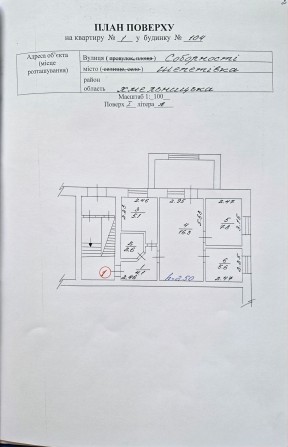 ПЛАН ПОВЕРХУ
на квартиру № 1 у будинку № 104
Адреса об'єкта (місце розташування)
Вулиця (провулок, площа) Соборності
місто (селище, село) Шепетівка
район
область Хмельницька
Масштаб 1: 100
Поверх I літера А
2.46
2.95
2.47
3
5.1
4
16.3
5
7.8
2
2.6
1
4.1
6
5.6
2.46
h=2.50
2.47
1